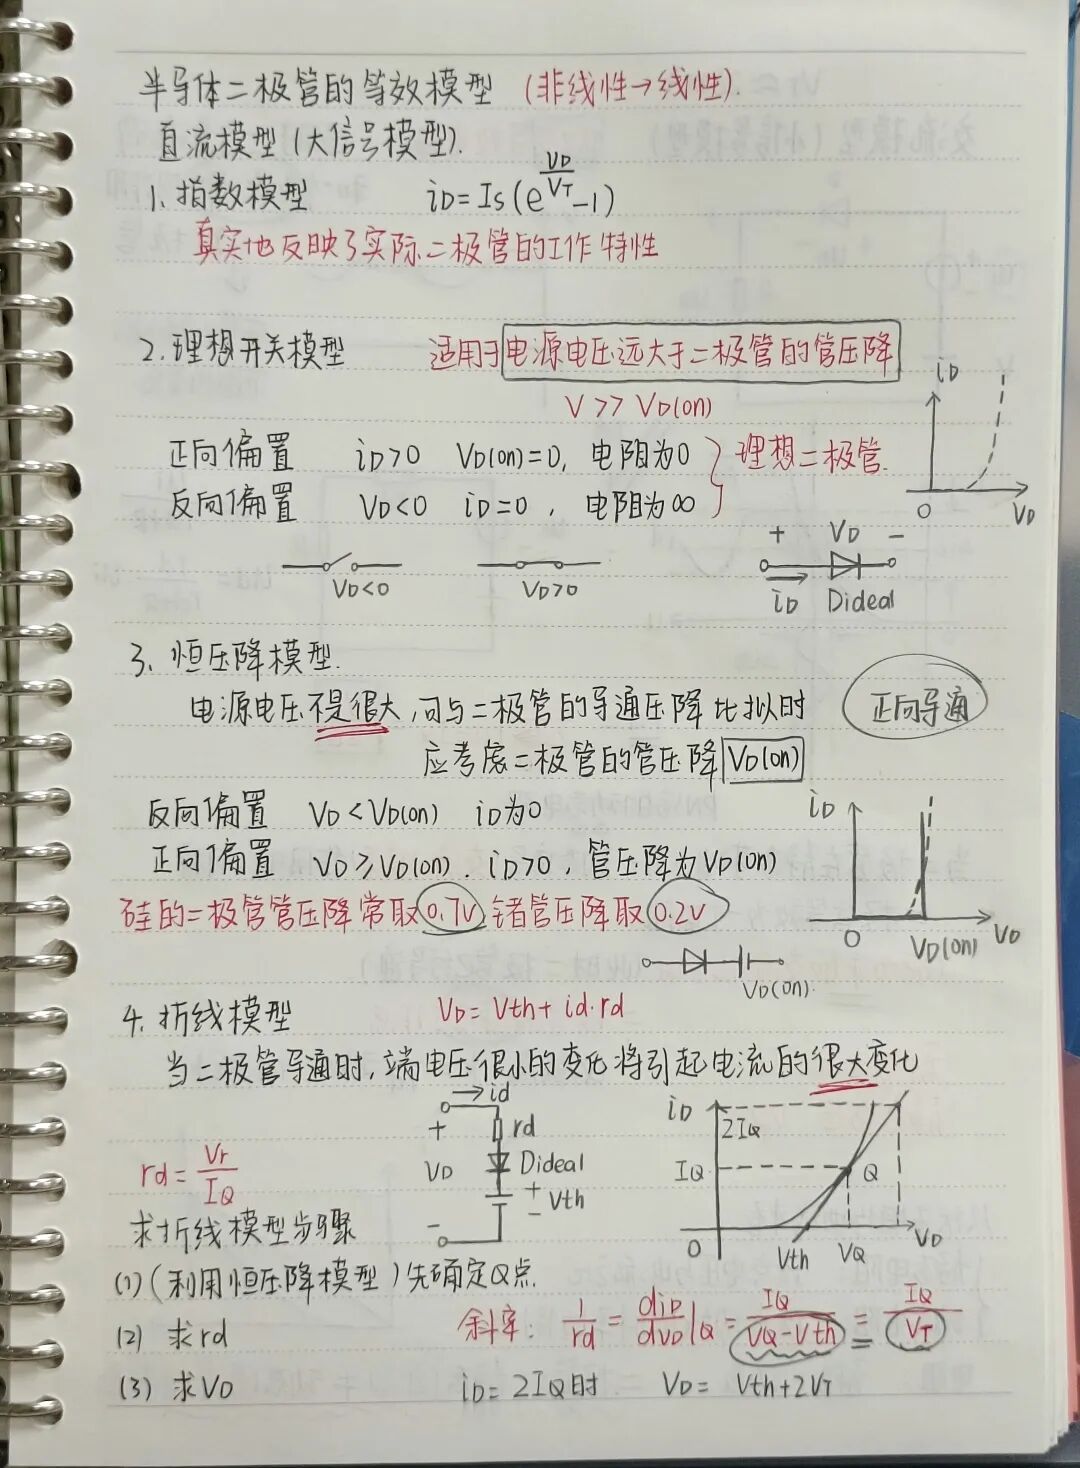 半导体二极管的等效模型 (非线性→线性).
直流模型(大信号模型).
1. 指数模型 iD=Is(e^(VD/VT)-1)
真实地反映了实际二极管的工作特性
2.理想开关模型 适用于电源电压远大于二极管的管压降
V>>VD(on)
正向偏置 iD>0 VD(on)=0, 电阻为0 } 理想二极管.
反向偏置 VD<0 iD=0, 电阻为∞
iD
0 VD
VD<0 VD>0
+ VD -
iD Dideal
3. 恒压降模型.
电源电压不是很大,可与二极管的导通压降比拟时 正向导通
应考虑二极管的管压降VD(on)
反向偏置 VD<VD(on) iD为0
正向偏置 VD≥VD(on). iD>0, 管压降为VD(on)
硅的二极管管压降常取0.7V 锗管压降取0.2V
iD
0 VD(on) VD
VD(on).
4. 折线模型 VD=Vth+id·rd
当二极管导通时,端电压很小的变化将引起电流的很大变化
id
+ rd
VD Dideal
+ Vth
-
-
iD
2IQ
IQ Q
0 Vth VQ VD
rd=Vr/IQ
求折线模型步骤
(1)(利用恒压降模型)先确定Q点.
(2) 求rd 斜率: 1/rd = diD/dvD|Q = IQ/(VQ-Vth) = IQ/VT
(3) 求VD iD=2IQ时 VD= Vth+2VT